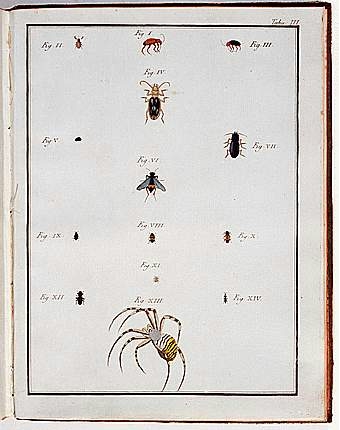 Tabu. III
Fig. I.
Fig. II.
Fig. III
Fig. IV.
Fig. V.
Fig. VI.
Fig. VII.
Fig. VIII.
Fig. IX.
Fig. X.
Fig. XI.
Fig. XII
Fig. XIII.
Fig. XIV.